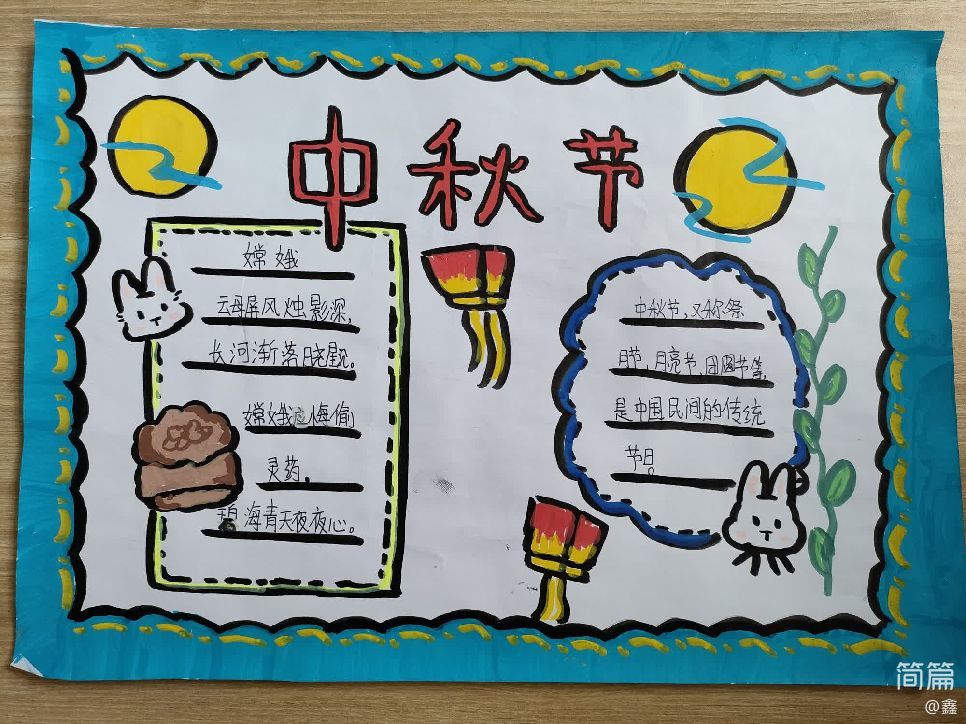 中秋节
嫦娥
云母屏风烛影深,
长河渐落晓星沉。
嫦娥应悔偷
灵药。
碧海青天夜夜心。
中秋节,又称祭
月节,月亮节,团圆节等,
是中国民间的传统
节日。
简篇
@鑫